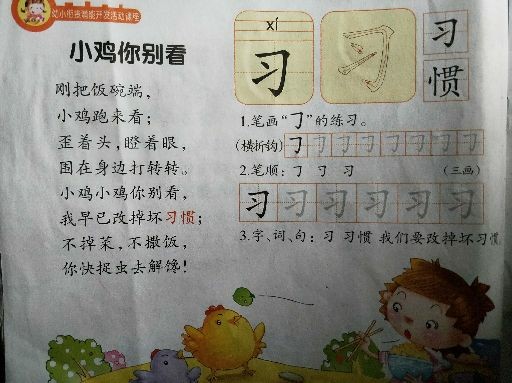 幼小衔接潜能开发活动课程
小鸡你别看
刚把饭碗端，
小鸡跑来看；
歪着头，瞪着眼，
围在身边打转转。
小鸡小鸡你别看，
我早已改掉坏习惯；
不掉菜，不撒饭，
你快捉虫去解馋！
xí
习
习
习
惯
1.笔画“㇆”的练习。
(横折钩) ㇆ 习 习 习 习 习 习 习
2.笔顺：㇆ 刁 习 (三画)
习 习 习 习 习 习
3.字、词、句：习 习惯 我们要改掉坏习惯